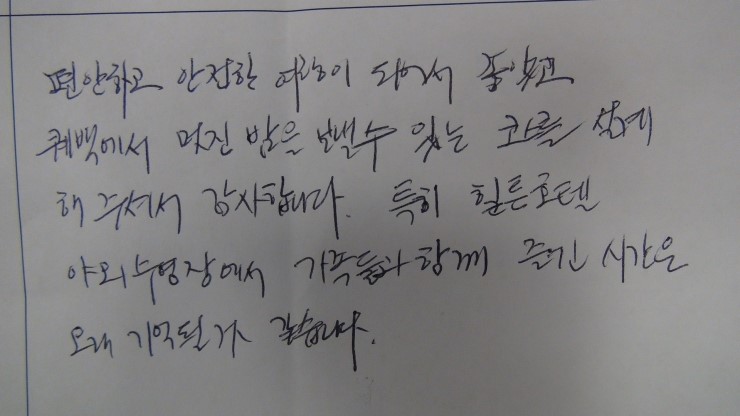 편안하고 안전한 여행이 되어서 좋았고
퀘백에서 멋진 밤을 보낼수 있는 코스를 설계
해 주셔서 감사합니다. 특히 힐튼호텔
야외수영장에서 가족들과 함께 즐긴 시간은
오래 기억될거 같습니다.